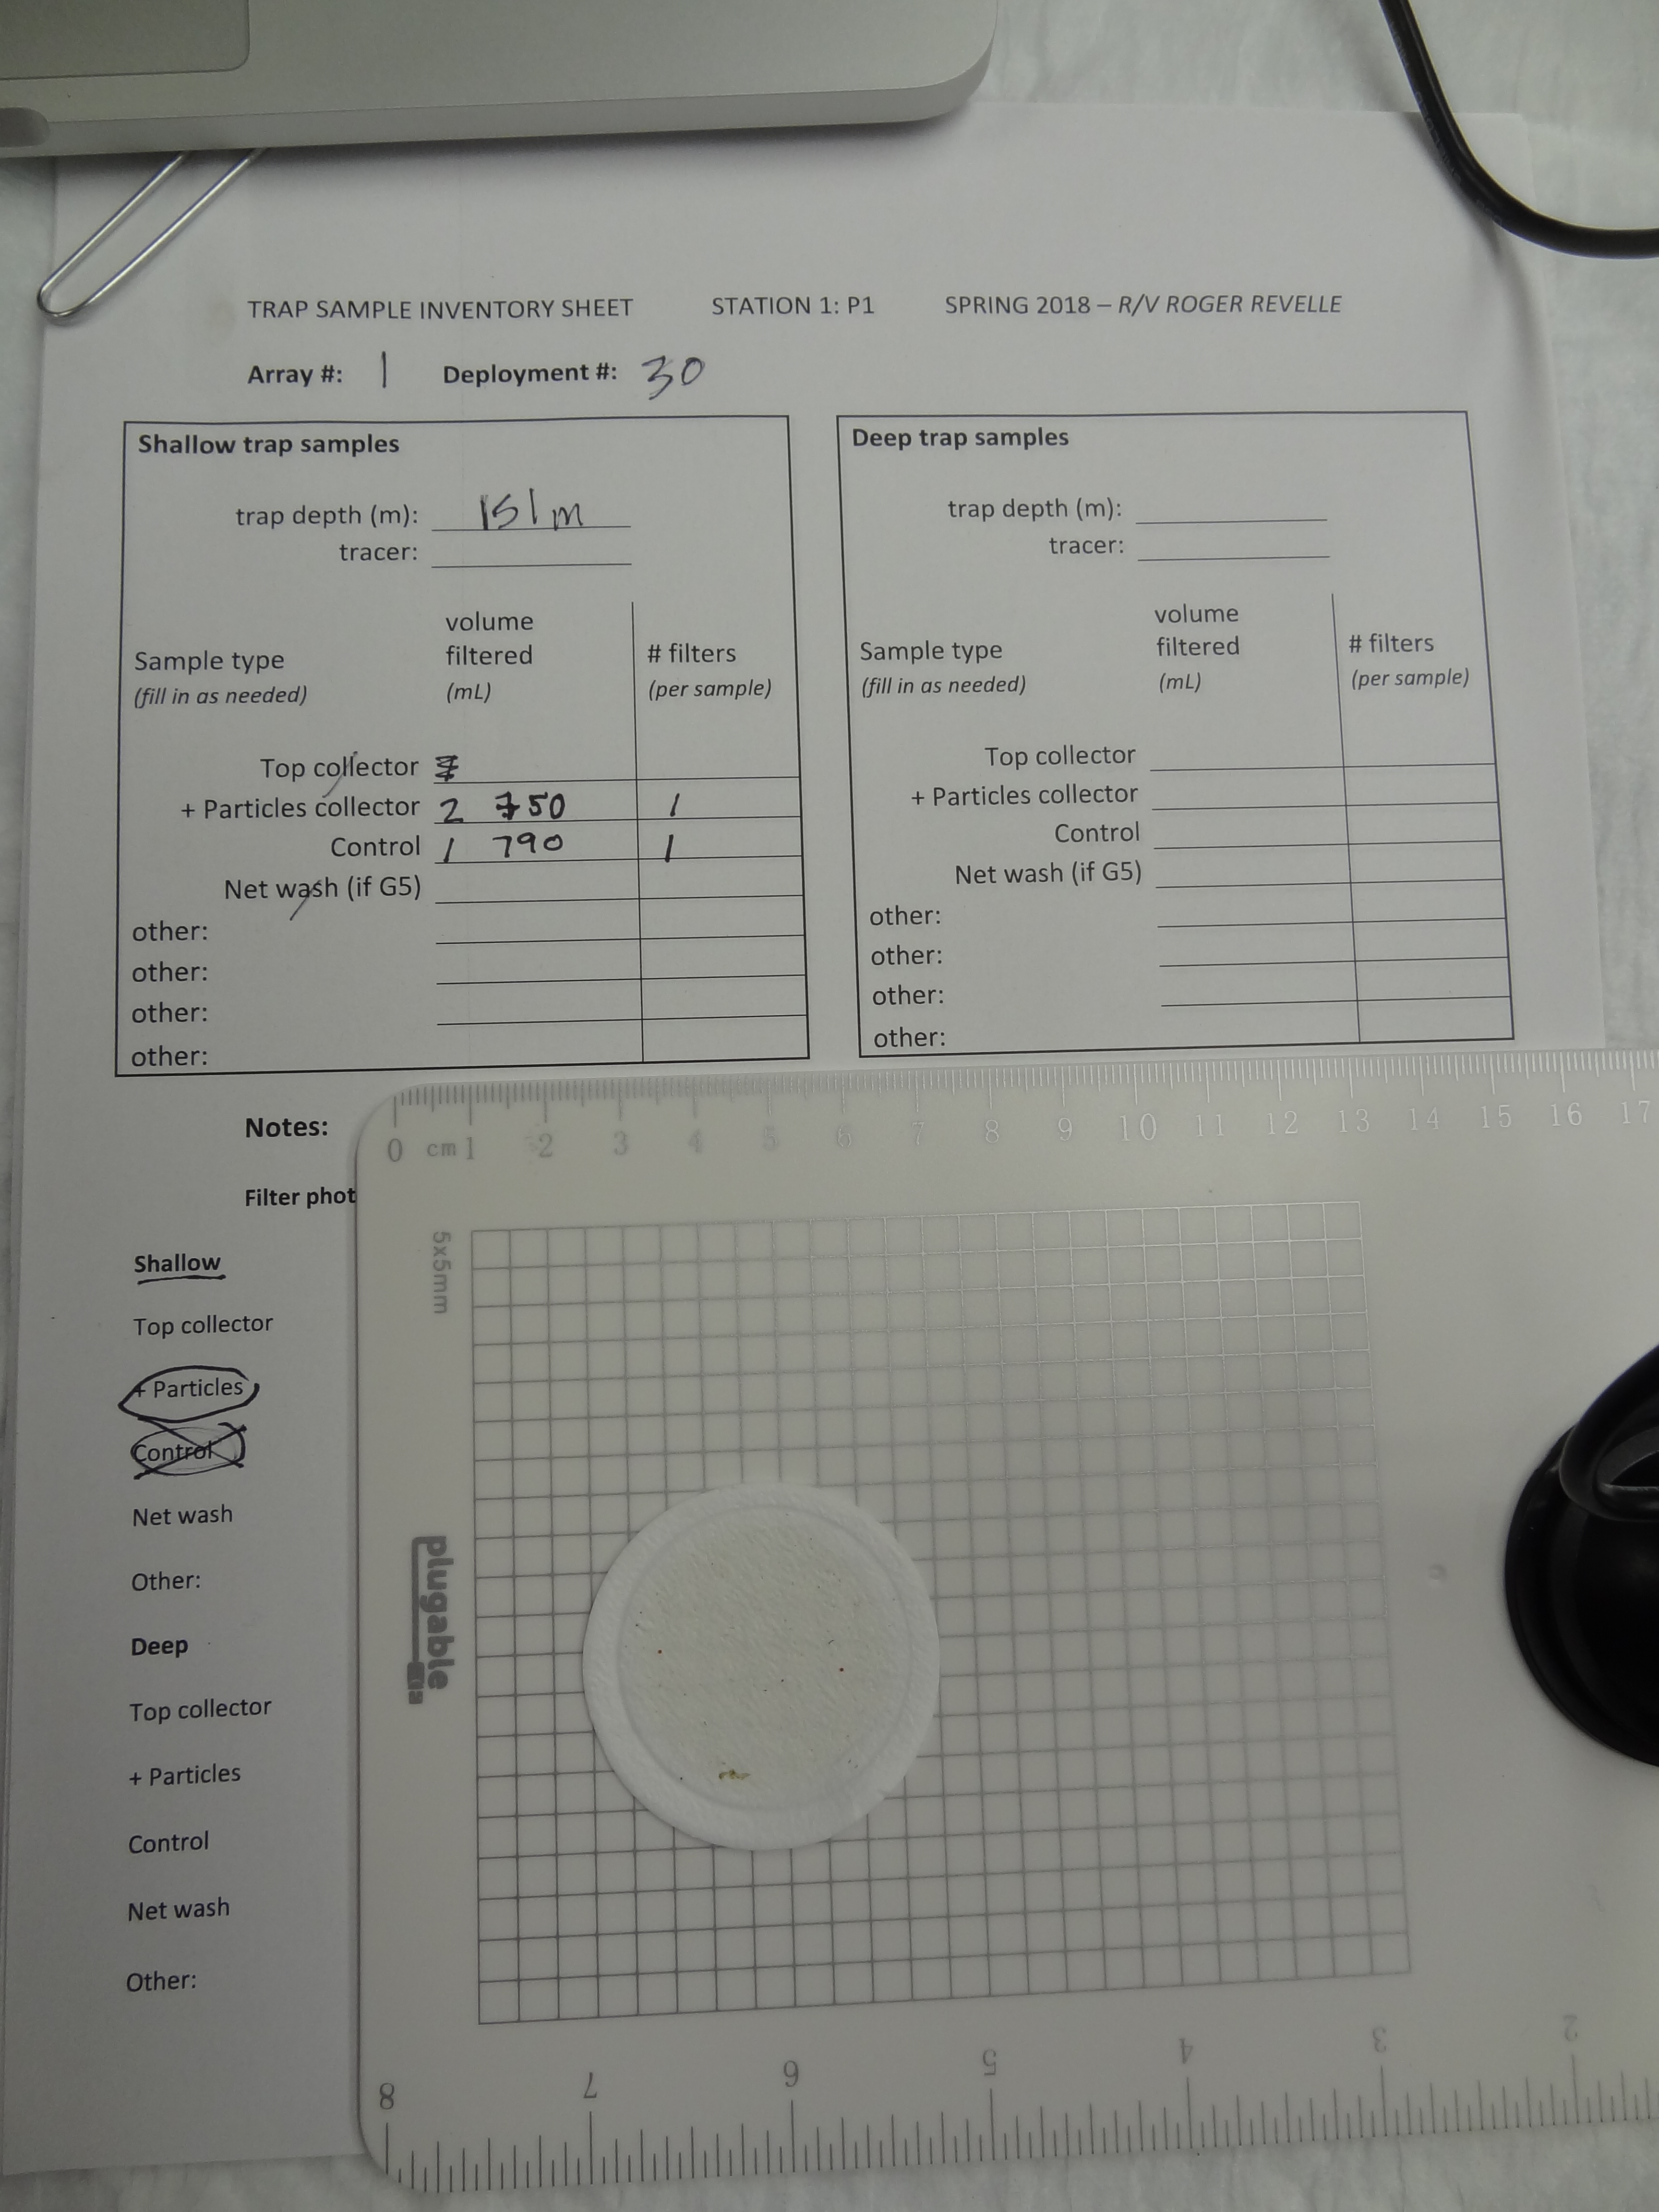 TRAP SAMPLE INVENTORY SHEET STATION 1: P1 SPRING 2018 – R/V ROGER REVELLE
Array #: 1 Deployment #: 30
Shallow trap samples
trap depth (m): 151 m
tracer:
Sample type (fill in as needed)
volume filtered (mL)
# filters (per sample)
Top collector
+ Particles collector 2 750 1
Control 1 790 1
Net wash (if G5)
other:
other:
other:
other:
Deep trap samples
trap depth (m):
tracer:
Sample type (fill in as needed)
volume filtered (mL)
# filters (per sample)
Top collector
+ Particles collector
Control
Net wash (if G5)
other:
other:
other:
other:
Notes:
Filter phot
Shallow
Top collector
+ Particles
Control
Net wash
Other:
Deep
Top collector
+ Particles
Control
Net wash
Other:
0 cm 1 2 3 4 5 6 7 8 9 10 11 12 13 14 15 16 17
5x5mm
plugable
8 7 6 5 4 3 2